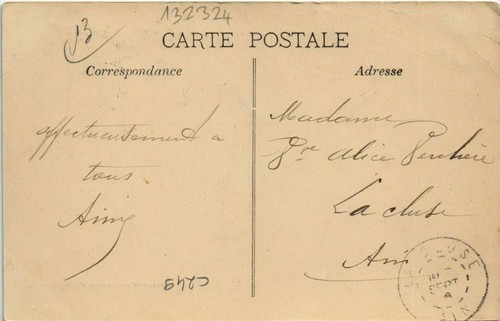 13
132324
CARTE POSTALE
Correspondance
Adresse
affectueusement à
tous
Aimé
Madame
Vve Alice
La cluse
Ain
C249